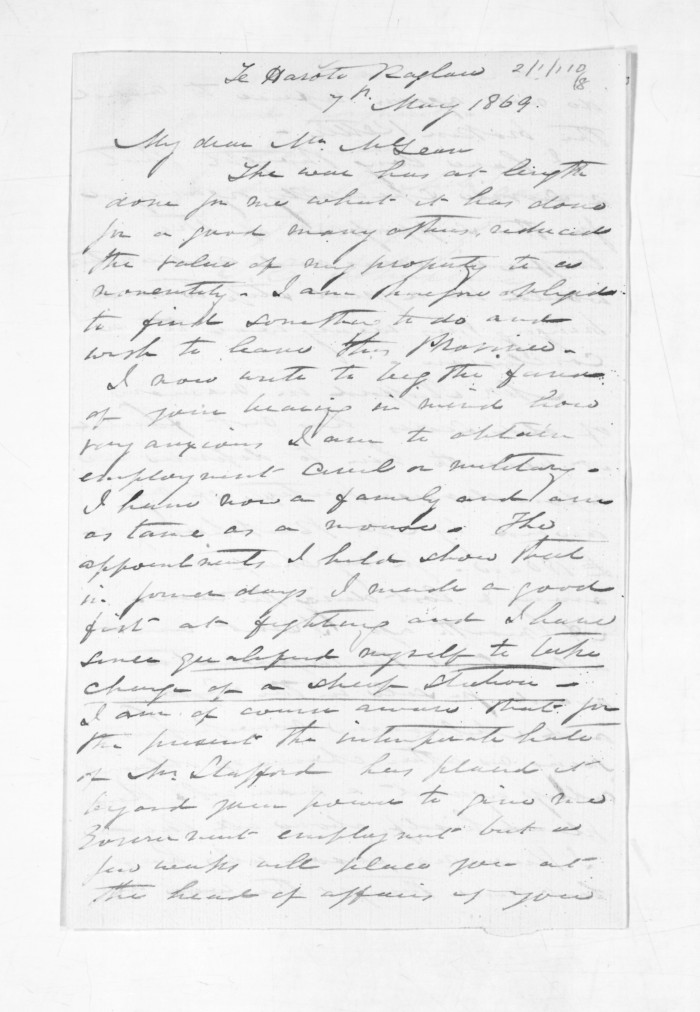 Te Haroto Raglan 2/1/110
/8
7th May 1869.
My dear Mr McLean
The war has at length
done for me what it has done
for a good many others, reduced
the value of my property to a
nonentity. I am therefore obliged
to find something to do and
wish to leave this Province.
I now write to beg the favor
of your bearing in mind how
very anxious I am to obtain
employment Civil or military.
I have now a family and am
as tame as a mouse. The
appointments I held show that
in former days I made a good
fist at fighting and I have
since qualified myself to take
charge of a sheep station.
I am of course aware that for
the present the intemperate hate
of Mr Stafford has placed it
beyond your power to give me
Government employment but a
few weeks will place you at
the head of affairs if you